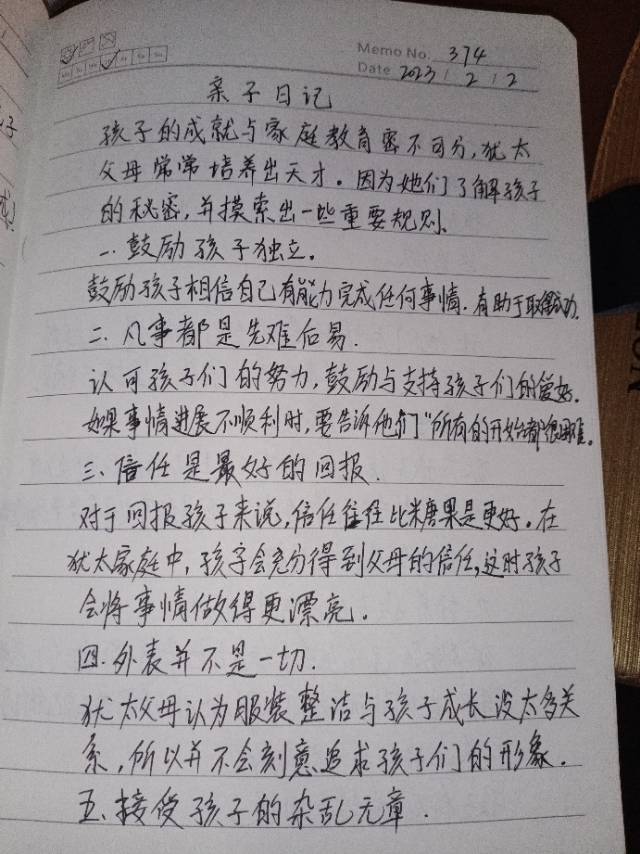 Memo No. 374
Date 2023 / 2 / 2
亲子日记
孩子的成就与家庭教育密不可分,犹太
父母常常培养出天才。因为她们了解孩子
的秘密,并摸索出一些重要规则。
一.鼓励孩子独立。
鼓励孩子相信自己有能力完成任何事情.有助于取得成功.
二.凡事都是先难后易.
认可孩子们的努力,鼓励与支持孩子们的爱好.
如果事情进展不顺利时,要告诉他们"所有的开始都很困难。
三.信任是最好的回报.
对于回报孩子来说,信任往往比糖果是更好。在
犹太家庭中,孩子会充分得到父母的信任,这时孩子
会将事情做得更漂亮.
四.外表并不是一切.
犹太父母认为服装整洁与孩子成长没太多关
系,所以并不会刻意追求孩子们的形象.
五、接受孩子的杂乱无章.